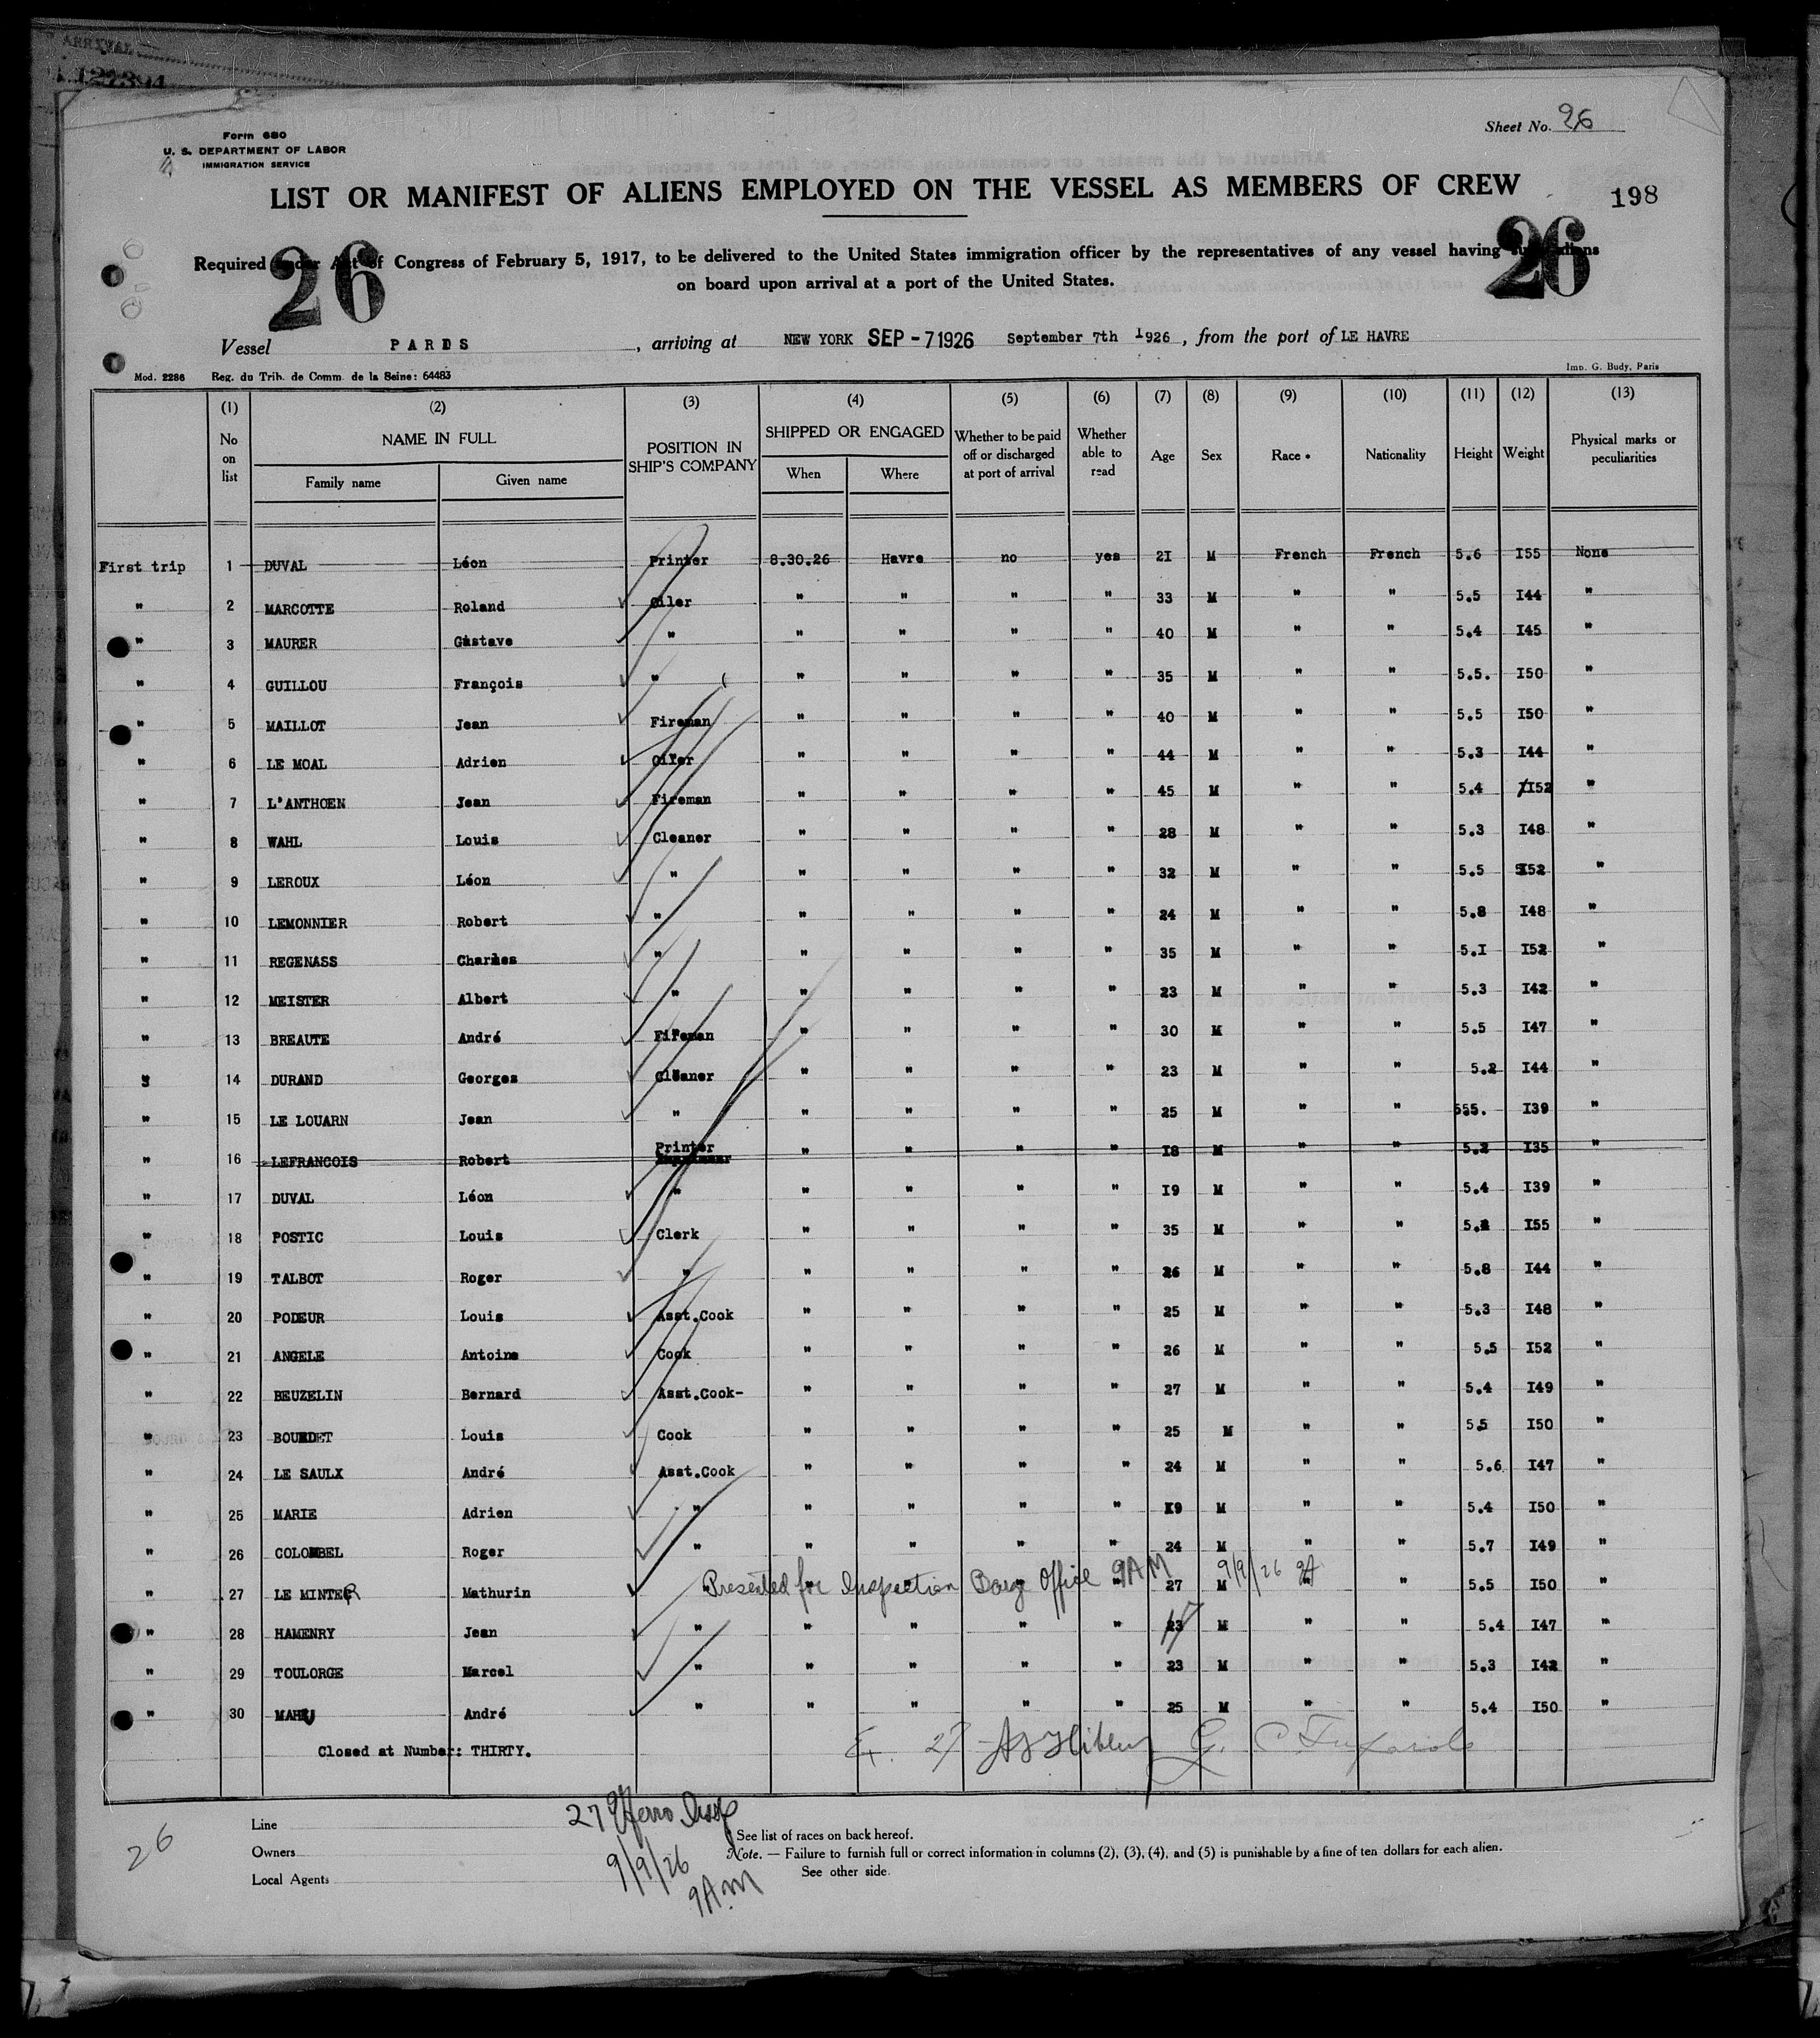 ARRIVAL
127394
Form 680
U. S. DEPARTMENT OF LABOR
IMMIGRATION SERVICE
Sheet No. 26
LIST OR MANIFEST OF ALIENS EMPLOYED ON THE VESSEL AS MEMBERS OF CREW
198
26 26
Required under Act of Congress of February 5, 1917, to be delivered to the United States immigration officer by the representatives of any vessel having such aliens
on board upon arrival at a port of the United States.
Vessel PARIS, arriving at NEW YORK SEP -7 1926 September 7th 1926, from the port of LE HAVRE
Mod. 2286 Reg. du Trib. de Comm. de la Seine: 64483 Imp. G. Budy, Paris
(1) (2) (3) (4) (5) (6) (7) (8) (9) (10) (11) (12) (13)
No on list NAME IN FULL Family name Given name POSITION IN SHIP'S COMPANY SHIPPED OR ENGAGED When Where Whether to be paid off or discharged at port of arrival Whether able to read Age Sex Race * Nationality Height Weight Physical marks or peculiarities
First trip 1 DUVAL Léon Printer 8.30.26 Havre no yes 2I M French French 5.6 I55 None
" 2 MARCOTTE Roland Oiler " " " " 33 M " " 5.5 I44 "
" 3 MAURER Gustave " " " " " 40 M " " 5.4 I45 "
" 4 GUILLOU François " " " " " 35 M " " 5.5. I50 "
" 5 MAILLOT Jean Fireman " " " " 40 M " " 5.5 I50 "
" 6 LE MOAL Adrien Oiler " " " " 44 M " " 5.3 I44 "
" 7 L'ANTHOEN Jean Fireman " " " " 45 M " " 5.4 I52 "
" 8 WAHL Louis Cleaner " " " " 28 M " " 5.3 I48 "
" 9 LEROUX Léon " " " " " 32 M " " 5.5 I52 "
" 10 LEMONNIER Robert " " " " " 24 M " " 5.8 I48 "
" 11 REGENASS Charles " " " " " 35 M " " 5.I I52 "
" 12 MEISTER Albert " " " " " 23 M " " 5.3 I42 "
" 13 BREAUTE André Fireman " " " " 30 M " " 5.5 I47 "
" 14 DURAND Georges Cleaner " " " " 23 M " " 5.2 I44 "
" 15 LE LOUARN Jean " " " " " 25 M " " 555. I39 "
" 16 LEFRANCOIS Robert Printer " " " " I8 M " " 5.2 I35 "
" 17 DUVAL Léon " " " " " I9 M " " 5.4 I39 "
" 18 POSTIC Louis Clerk " " " " 35 M " " I55 "
" 19 TALBOT Roger " " " " " 26 M " " 5.8 I44 "
" 20 PODEUR Louis Asst.Cook " " " " 25 M " " 5.3 I48 "
" 21 ANGELE Antoine Cook " " " " 26 M " " 5.5 I52 "
" 22 BEUZELIN Bernard Asst.Cook- " " " " 27 M " " 5.4 I49 "
" 23 BOURDET Louis Cook " " " " 25 M " " 5.5 I50 "
" 24 LE SAULX André Asst.Cook " " " " 24 M " " 5.6 I47 "
" 25 MARIE Adrien " " " " " I9 M " " 5.4 I50 "
" 26 COLOMBEL Roger " " " " " 24 M " " 5.7 I49 "
" 27 LE MINTER Mathurin Presented for Inspection Barge Office 9AM " 27 M 9/9/26 " " 5.5 I50 "
" 28 HAMENRY Jean " " " " " 23 17 M " " 5.4 I47 "
" 29 TOULORGE Marcel " " " " " 23 M " " 5.3 I42 "
" 30 MAHEU André " " " " " 25 M " " 5.4 I50 "
Closed at Number: THIRTY. 27
Line
Owners
Local Agents
26
27
9/9/26
9 A.M
See list of races on back hereof.
Note. — Failure to furnish full or correct information in columns (2), (3), (4), and (5) is punishable by a fine of ten dollars for each alien.
See other side.